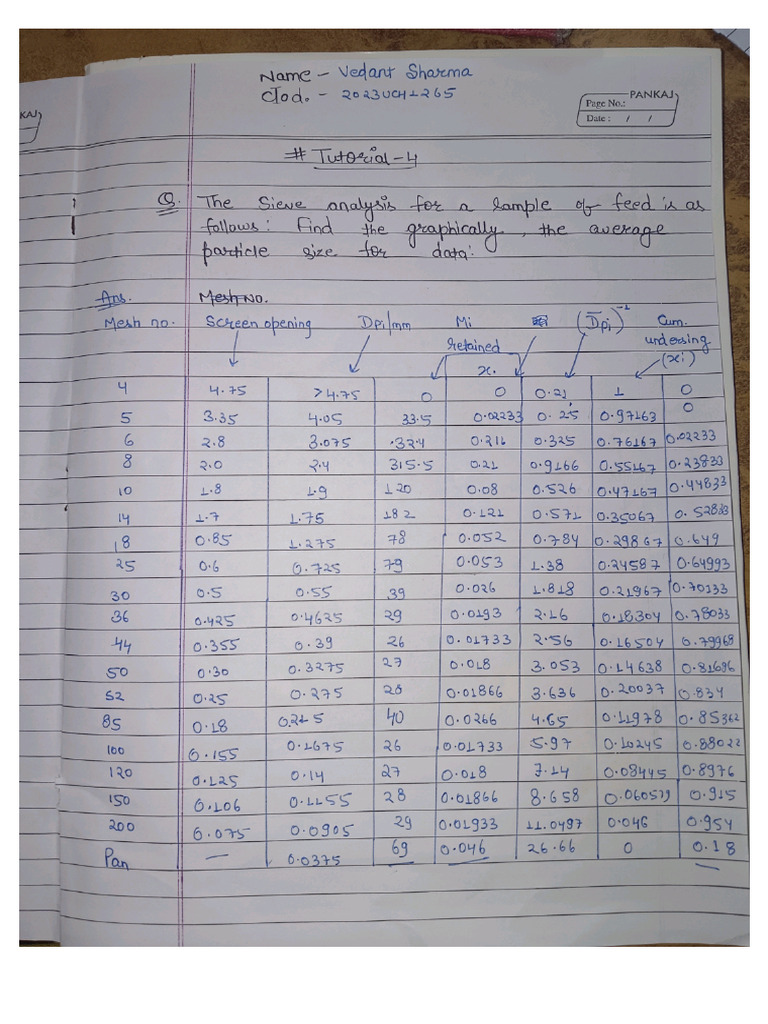 KAJ
Name - Vedant Sharma
- 2023UCH1265
PANKAJ
Page No.:
Date : / /
# Tutorial-4
Q. The Sieve analysis for a sample of feed is as
follows: Find the graphically, the average
particle size for data:
Ans. Mesh No.
Mesh no. Screen opening Dpi/mm Mi retained x. (D̄pi)⁻¹ Cum. undersing (xi)
4 4.75 >4.75 0 0 0.21 1 0
5 3.35 4.05 33.5 0.02233 0.25 0.97163 0
6 2.8 3.075 .324 0.216 0.325 0.76167 0.02233
8 2.0 2.4 315.5 0.21 0.9166 0.55167 0.23833
10 1.8 1.9 120 0.08 0.526 0.47167 0.44833
14 1.7 1.75 182 0.121 0.571 0.35067 0.52833
18 0.85 1.275 78 0.052 0.784 0.29867 0.649
25 0.6 0.725 79 0.053 1.38 0.24587 0.64993
30 0.5 0.55 39 0.026 1.818 0.21967 0.70133
36 0.425 0.4625 29 0.0193 2.16 0.18304 0.78033
44 0.355 0.39 26 0.01733 2.56 0.16504 0.79968
50 0.30 0.3275 27 0.018 3.053 0.14638 0.81696
52 0.25 0.275 28 0.01866 3.636 0.20037 0.834
85 0.18 0.215 40 0.0266 4.65 0.11978 0.85362
100 0.155 0.1675 26 0.01733 5.97 0.10245 0.88022
120 0.125 0.14 27 0.018 7.14 0.08445 0.8976
150 0.106 0.1155 28 0.01866 8.658 0.060579 0.915
200 0.075 0.0905 29 0.01933 11.0497 0.046 0.954
Pan — 0.0375 69 0.046 26.66 0 0.18